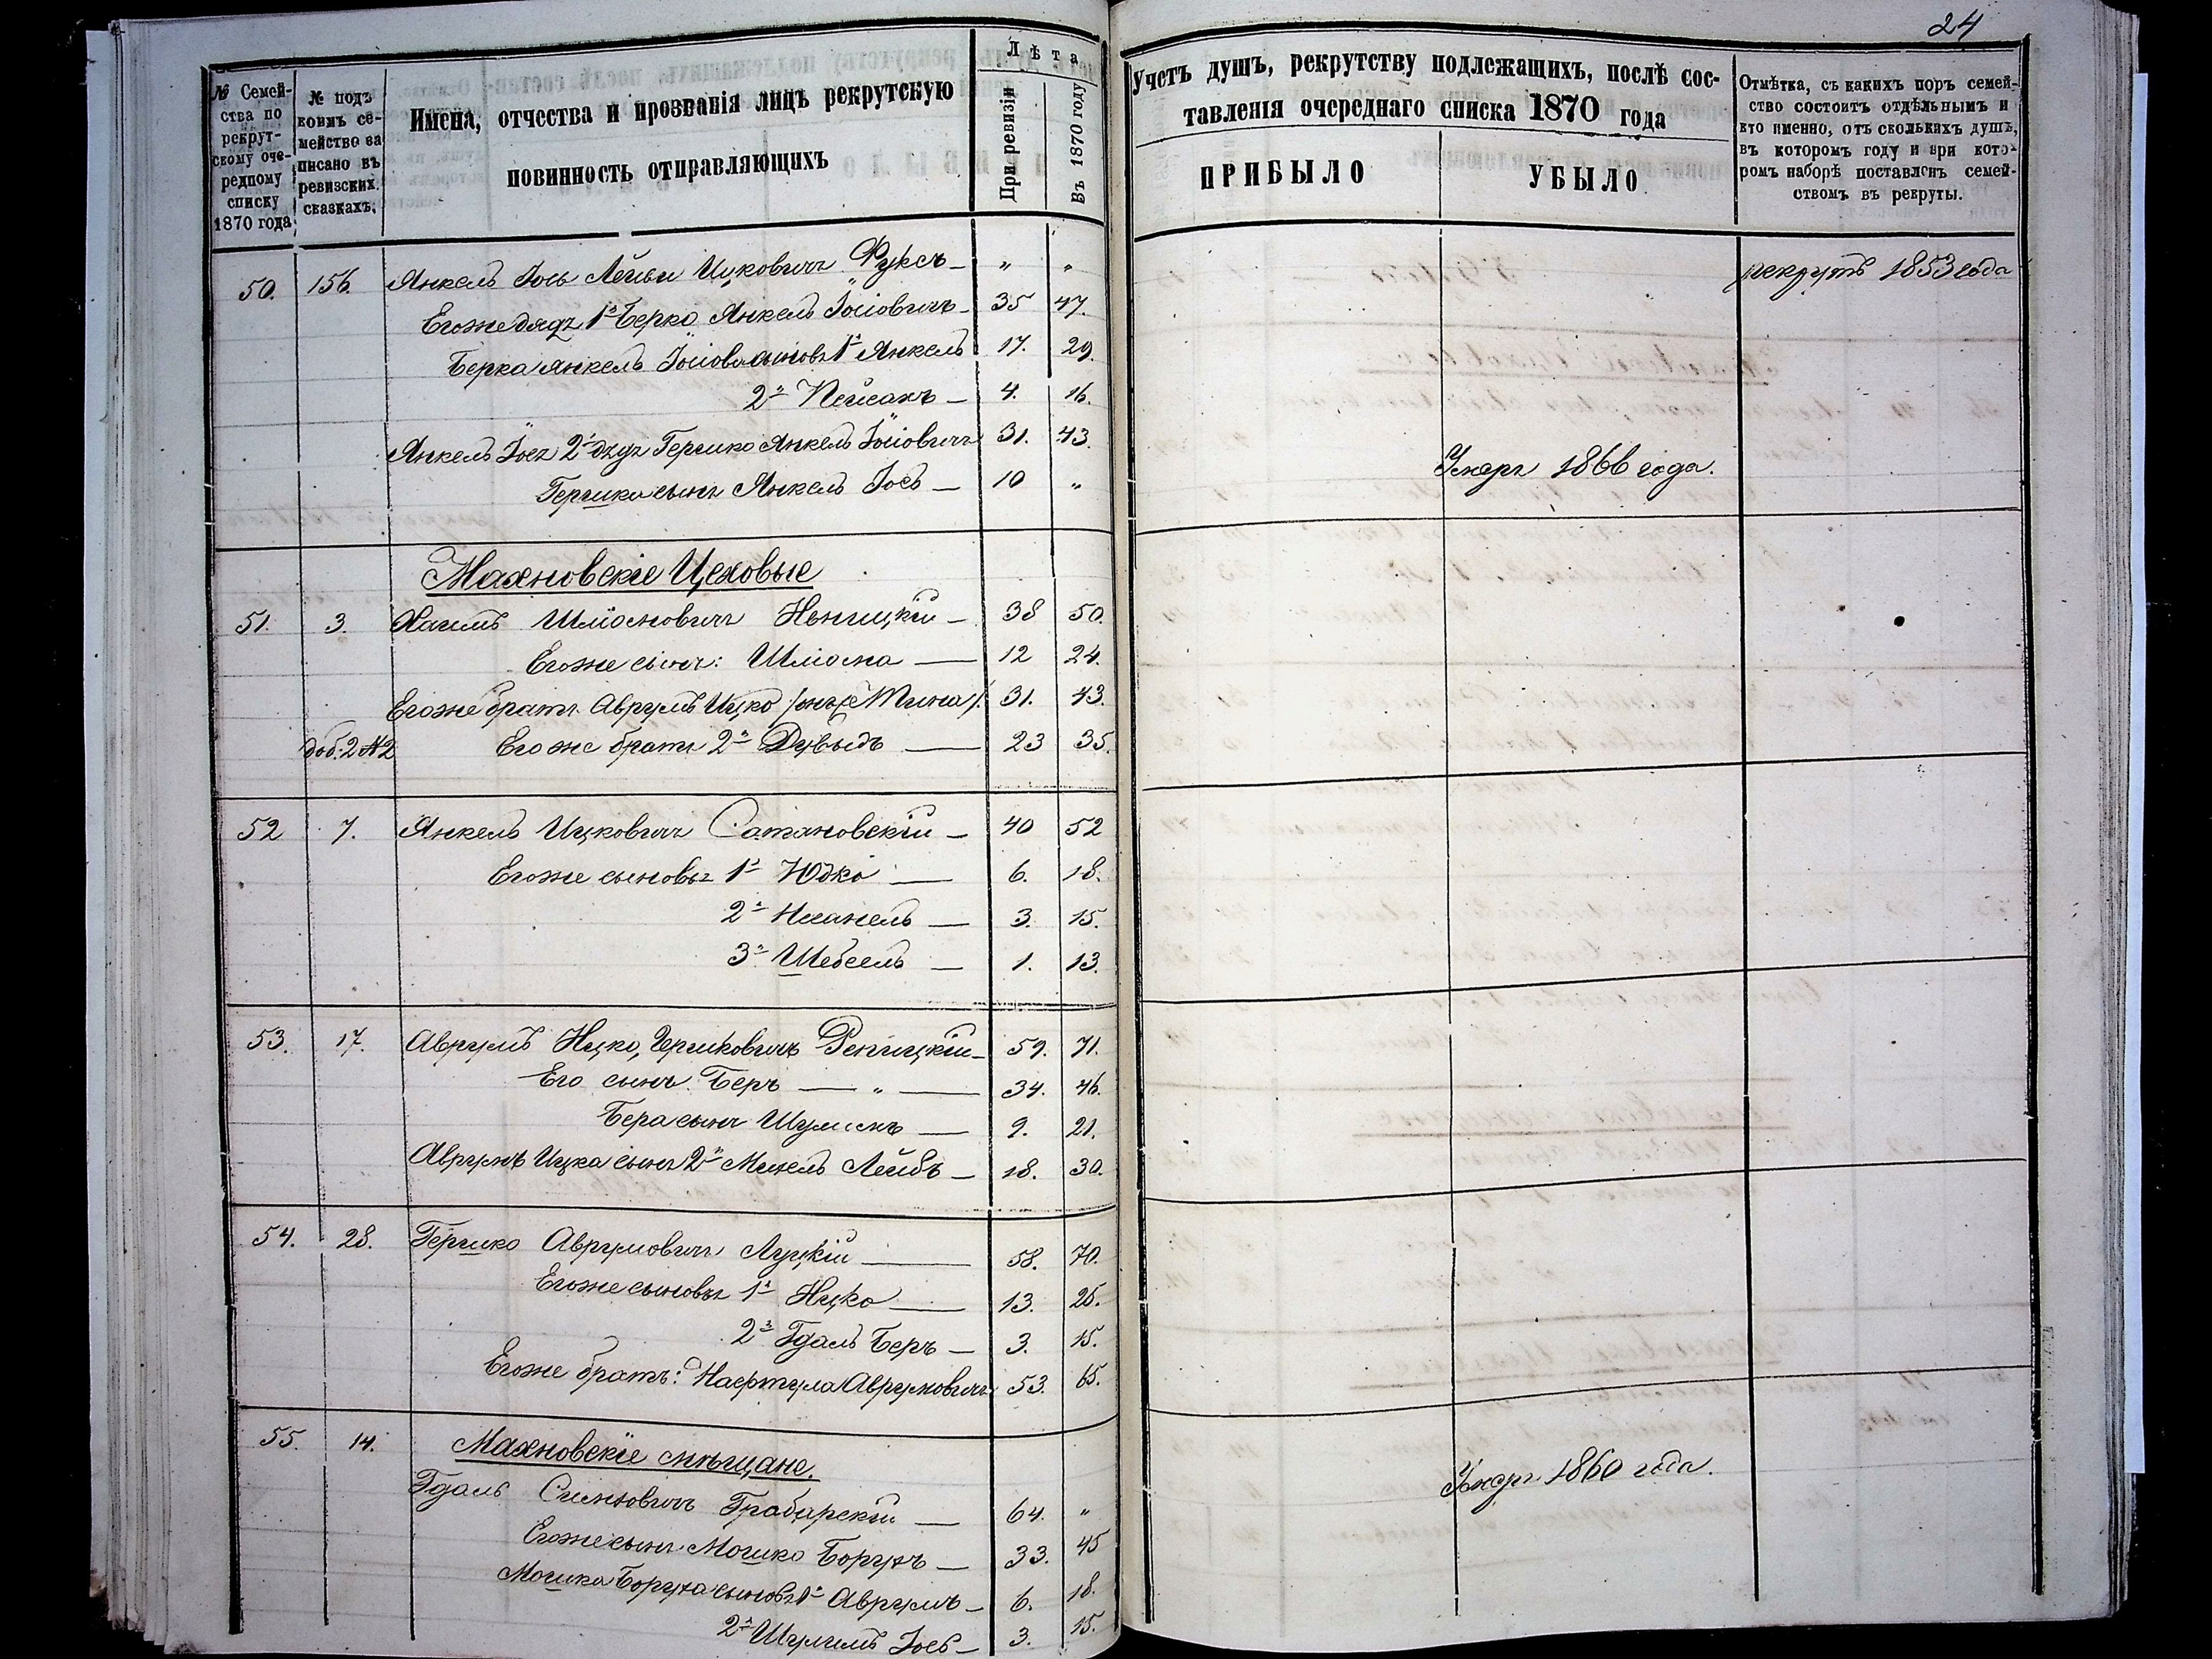 24
№ Семей-
ства по
рекрут-
скому оче-
редному
списку
1870 года
№ подъ
коимъ се-
мейство за
писано въ
ревизскихъ
сказкахъ.
Имена, отчества и прозванія лицъ рекрутскую
повинность отправляющихъ
Лѣта
При ревизіи
Въ 1870 году
Учетъ душъ, рекрутству подлежащихъ, послѣ сос-
тавленія очереднаго списка 1870 года
ПРИБЫЛО
УБЫЛО
Отмѣтка, съ какихъ поръ семей-
ство состоитъ отдѣльнымъ и
кто именно, отъ сколькихъ душъ,
въ которомъ году и при кото-
ромъ наборѣ поставленъ семей-
ствомъ въ рекруты.
50. 156. Янкель Іось Лейби Ицковичъ Фуксъ — " " рекрутъ 1853 года
Егоже дядя 1й Берко Янкель Іосіовичъ — 35 47.
Берка Янкель Іосіова сыновья 1й Янкель 17. 29.
2й Пейсахъ — 4. 16.
Янкель Іося 2й дядя Гершко Янкель Іосіовичъ 31. 43.
Гершка сынъ Янкель Іось — 10 " Умеръ 1866 года.
Махновскіе Цеховые
51. 3. Хаимъ Шліомовичъ — 38 50.
Егоже сынъ: Шліома — 12 24.
Егоже братъ Аврумъ Ицко 31. 43.
доб. 2 №2 Егоже братъ 2й Дувыдъ — 23 35.
52 7. Янкель Ицковичъ Сатановскій — 40 52
Егоже сыновья 1й Юдко — 6. 18.
2й Иханель — 3. 15.
3й Шебсель — 1. 13.
53. 17. Аврумъ Ицко Гершковичъ Репицкій — 59. 71.
Его сынъ Беръ — " — 34. 46.
Бера сынъ Шулимъ — 9. 21.
Аврумъ Ицка сынъ 2й Михель Лейбъ — 18. 30.
54. 28. Гершко Аврумовичъ Луцкій — 58. 70.
Егоже сыновья 1й Ицко — 13. 25.
2й Гдаль Беръ — 3. 15.
Егоже братъ: Нафтула Аврумовичъ 53. 65.
55. 14. Махновскіе мѣщане.
Гдаль Симховичъ Грабарскій — 64. " Умеръ 1860 года.
Егоже сынъ Мошко Борухъ — 33. 45
Мошка Боруха сыновья 1й Аврумъ — 6. 18.
2й Шулимъ Іось — 3. 15.